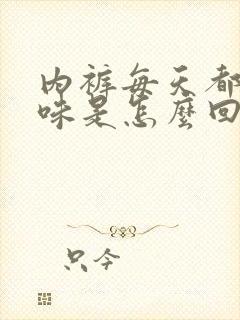 内裤每天都
味是怎麼回
只今